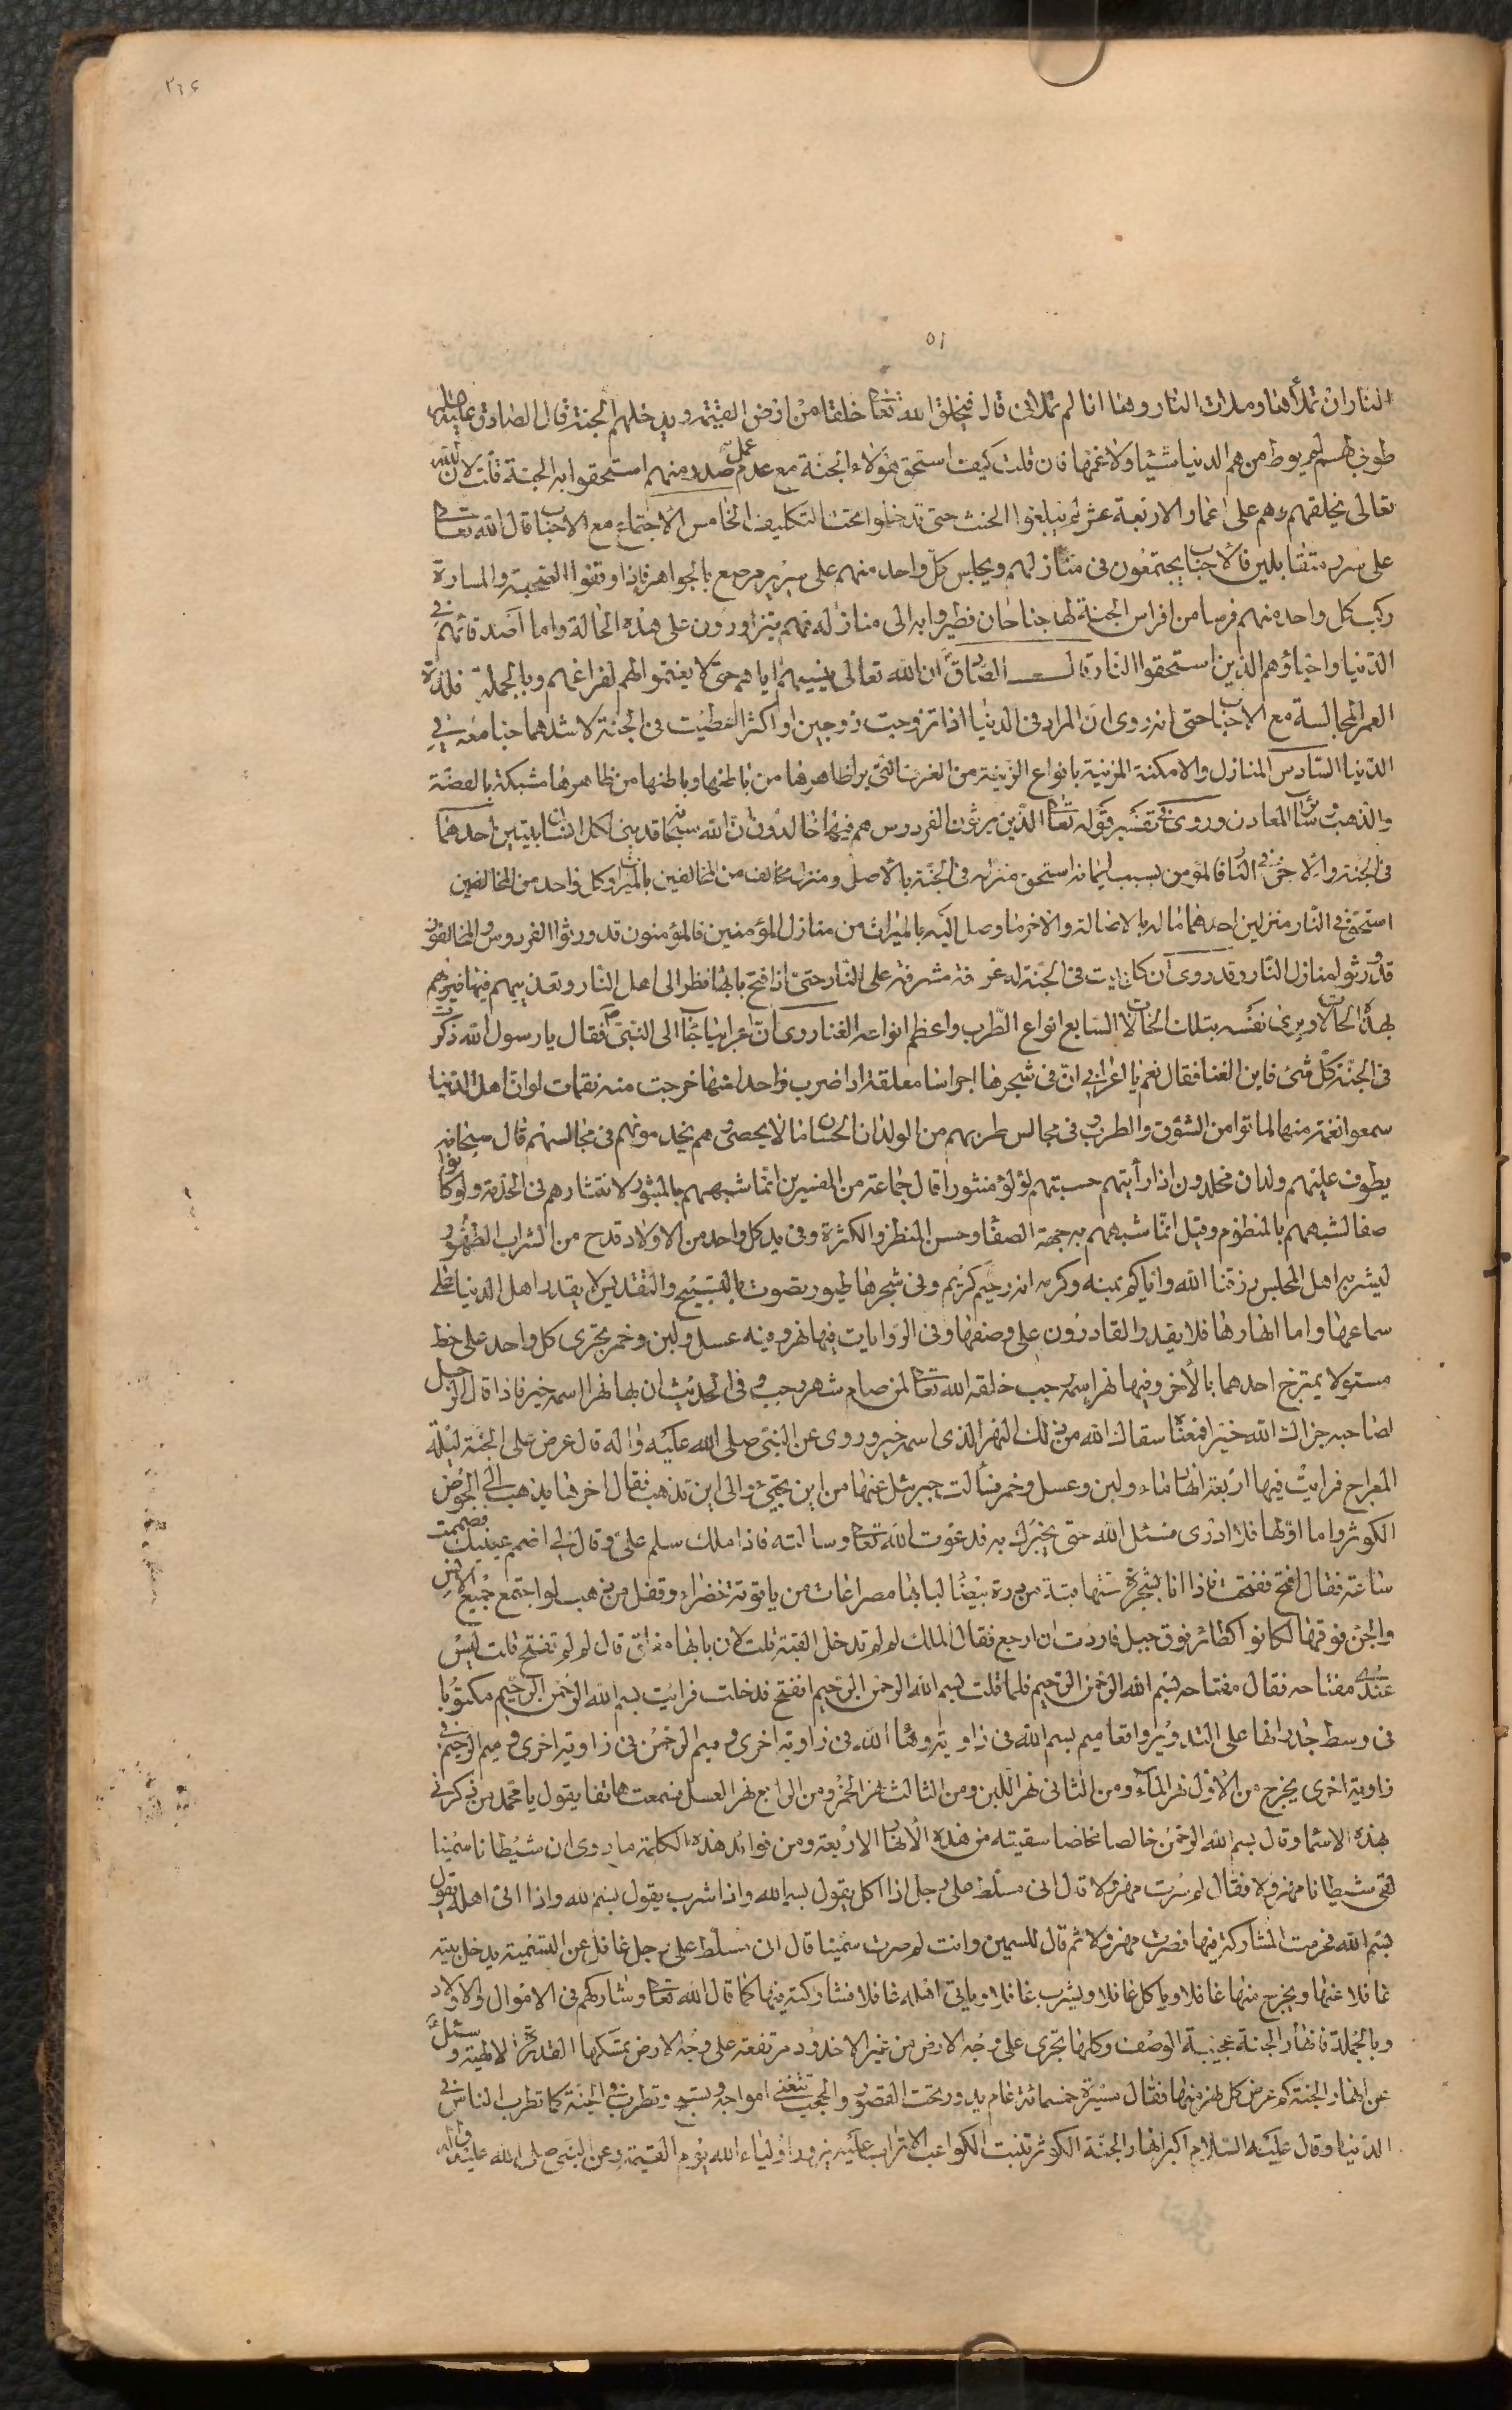 ٢٦۶
٥١
النار ان تملأها وملات النار وها انا لم تملانى قال فيخلق الله تعا خلقا من ارض القيمة ويدخلهم الجنة قال الصادق عليه السلم
طوبى لهم لم يروا من هم الدنيا شيئا ولا غمها فان قلت كيف استحق هؤلاء الجنة مع عدم عمل صدر منهم استحقوا به الجنة قلت لان الله
تعالى يخلقهم وهم على اعمار الاربعة عشر لم يبلغوا الحنث حتى تدخلوا تحت التكليف الخامس الاجتماع مع الاحباب قال الله تعا
على سرر متقابلين فالاحباب يجتمعون فى منازلهم ويجلس كل واحد منهم على سرير مرصع بالجواهر فاذا وقفوا الصحبة والمسارة
ركب كل واحد منهم فرسا من افراس الجنة لها جناحان فطيروا به الى منازله فهم يتزاورون على هذه الحالة واما اصدقائهم فى
الدنيا واحباؤهم الذين استحقوا النار قال الصادق ان الله تعالى ينسيهم اياهم حتى لا يغتموا لهم لفراغهم وبالجملة فلذة
العمر المجالسة مع الاحباب حتى انه روى ان المراة فى الدنيا اذا تزوجت زوجين او اكثر اعطيت فى الجنة لاشدهما حبا معه فى
الدنيا السادس المنازل والامكنة المزينة بانواع الزينة من الغرف التى يرا ظاهرها من باطنها وباطنها من ظاهرها مشبكة بالفضة
والذهب وسائر المعادن وروى فى تفسير قوله تعا الذين يرثون الفردوس هم فيها خالدون ان الله سبحانه قد بنى لكل انسان بيتين احدهما
فى الجنة والاخر فى النار فالمؤمن بسبب ايمانه استحق منزله فى الجنة بالاصل ومنزل مخالف من المخالفين بالميراث وكل واحد من المخالفين
استحق فى النار منزلين احدهما ماله بالاصالة والاخر ما وصل اليه بالميراث من منازل المؤمنين فالمؤمنون قد ورثوا الفردوس والمخالفون
قد ورثوا منازل النار وقد روى ان كل بيت فى الجنة له غرفة مشرفة على النار حتى اذا فتح بابها نظر الى اهل النار وتعذيبهم فيها فيراهم
بهذه الحالات ويرى نفسه بتلك الحالات السابع انواع الطرب واعظم انواعه الغنا روى ان اعرابيا جاء الى النبى ص فقال يا رسول الله ذكرت
فى الجنة كل شئ فاين الغنا فقال نعم يا اعرابى ان فى شجرها اجراسا معلقة اذا ضرب واحد منها خرجت منه نغمات لو ان اهل الدنيا
سمعوا نغمة منها لماتوا من الشوق والطرب وفى مجالس طربهم من الولدان الحسان ما لا يحصى وهم يخدمونهم فى مجالسهم قال سبحانه
يطوف عليهم ولدان مخلدون اذا رأيتهم حسبتهم لؤلؤ منثورا قال جماعة من المفسرين انما شبههم بالمنثور لانتشارهم فى الخدمة ولو كانوا
صفا لشبههم بالمنظوم وقيل انما شبههم به جهة الصفا وحسن المنظر والكثرة وفى يد كل واحد من الاولاد قدح من الشراب الطهور
ليشربه اهل المجلس رزقنا الله واياكم بمنه وكرمه انه رحيم كريم وفى شجرها طيور يصوت بالتسبيح والتقديس لا يقدر اهل الدنيا على
سماعها واما انهارها فلا يقدر القادرون على وصفها وفى الروايات فيها نهر فيه عسل ولبن وخمر يجرى كل واحد على خط
مستوى لا يمتزج احدهما بالاخر وفيها نهر اسمه رجب خلقه الله تعا لمن صام شهر رجب وفى الحديث ان بها نهرا اسمه خير فاذا قال الرجل
لصاحبه جزاك الله خيرا فمعناه سقاك الله من ذلك النهر الذى اسمه خير وروى عن النبى صلى الله عليه واله قال عرض على الجنة ليلة
المعراج فرايت فيها اربعة انهار ماء ولبن وعسل وخمر فسألت جبرئيل عنها من اين تجئ والى اين تذهب فقال اخرها يذهب الى الحوض
الكوثر واما اولها فلا ادرى فسئل الله حتى يخبرك به فدعوت الله تعا وسالته فاذا ملك سلم على وقال لى اضمم عينيك فضممت
ساعة فقال افتح ففتحت فاذا انا بشجرة تحتها قبة من درة بيضا لبابها مصراعان من ياقوتة خضراء وقفل من ذهب لو اجتمع جميع الانس
والجن فوقها لكانوا كطائر فوق جبل فاردت ان ارجع فقال الملك لم لم تدخل القبة قلت لان بابها مغلق قال لم لم تفتح قلت ليس
عندى مفتاحه فقال مفتاحه بسم الله الرحمن الرحيم فلما قلت بسم الله الرحمن الرحيم انفتح فدخلت فرايت بسم الله الرحمن الرحيم مكتوبا
فى وسط جدرانها على التدوير واقعا ميم بسم الله فى زاوية وهاء الله فى زاوية اخرى وميم الرحمن فى زاوية اخرى وميم الرحيم فى
زاوية اخرى يخرج من الاول نهر الماء ومن الثانى نهر اللبن ومن الثالث نهر الخمر ومن الرابع نهر العسل فسمعت هاتفا يقول يا محمد من ذكرنى
بهذه الاسما وقال بسم الله الرحمن خالصا مخاضا سقيته من هذه الانهار الاربعة ومن فوائد هذه الكلمة ما روى ان شيطانا سمينا
لقى شيطانا مهزولا فقال لم صرت مهزولا قال انى مسلط على رجل اذا اكل يقول بسم الله واذا شرب يقول بسم الله واذا اتى اهله يقول
بسم الله فحرمت المشاركة فيها فصرت مهزولا ثم قال للسمين وانت لم صرت سمينا قال انى مسلط على رجل غافل عن التسمية يدخل بيته
غافلا عنها ويخرج منها غافلا وياكل غافلا ويشرب غافلا وياتى اهله غافلا فشاركته فيها كما قال الله تعا وشاركهم فى الاموال والاولاد
وبالجملة فانهار الجنة عجيبة الوصف وكلها تجرى على وجه الارض من غير الاخدود مرتفعة على وجه الارض تمسكها القدرة الالهية وسئل
عن انهار الجنة كم عرض كل نهر منها فقال مسيرة خمسمائة عام يدور تحت القصور والحجب تتغنى امواجه وتسبح وتطرب فى الجنة كما تطرب الناس فى
الدنيا وقال عليه السلام اكبر انهار الجنة الكوثر تنبت الكواعب الاتراب عليه يزوره اولياء الله يوم القيمة وعن النبى صلى الله عليه واله